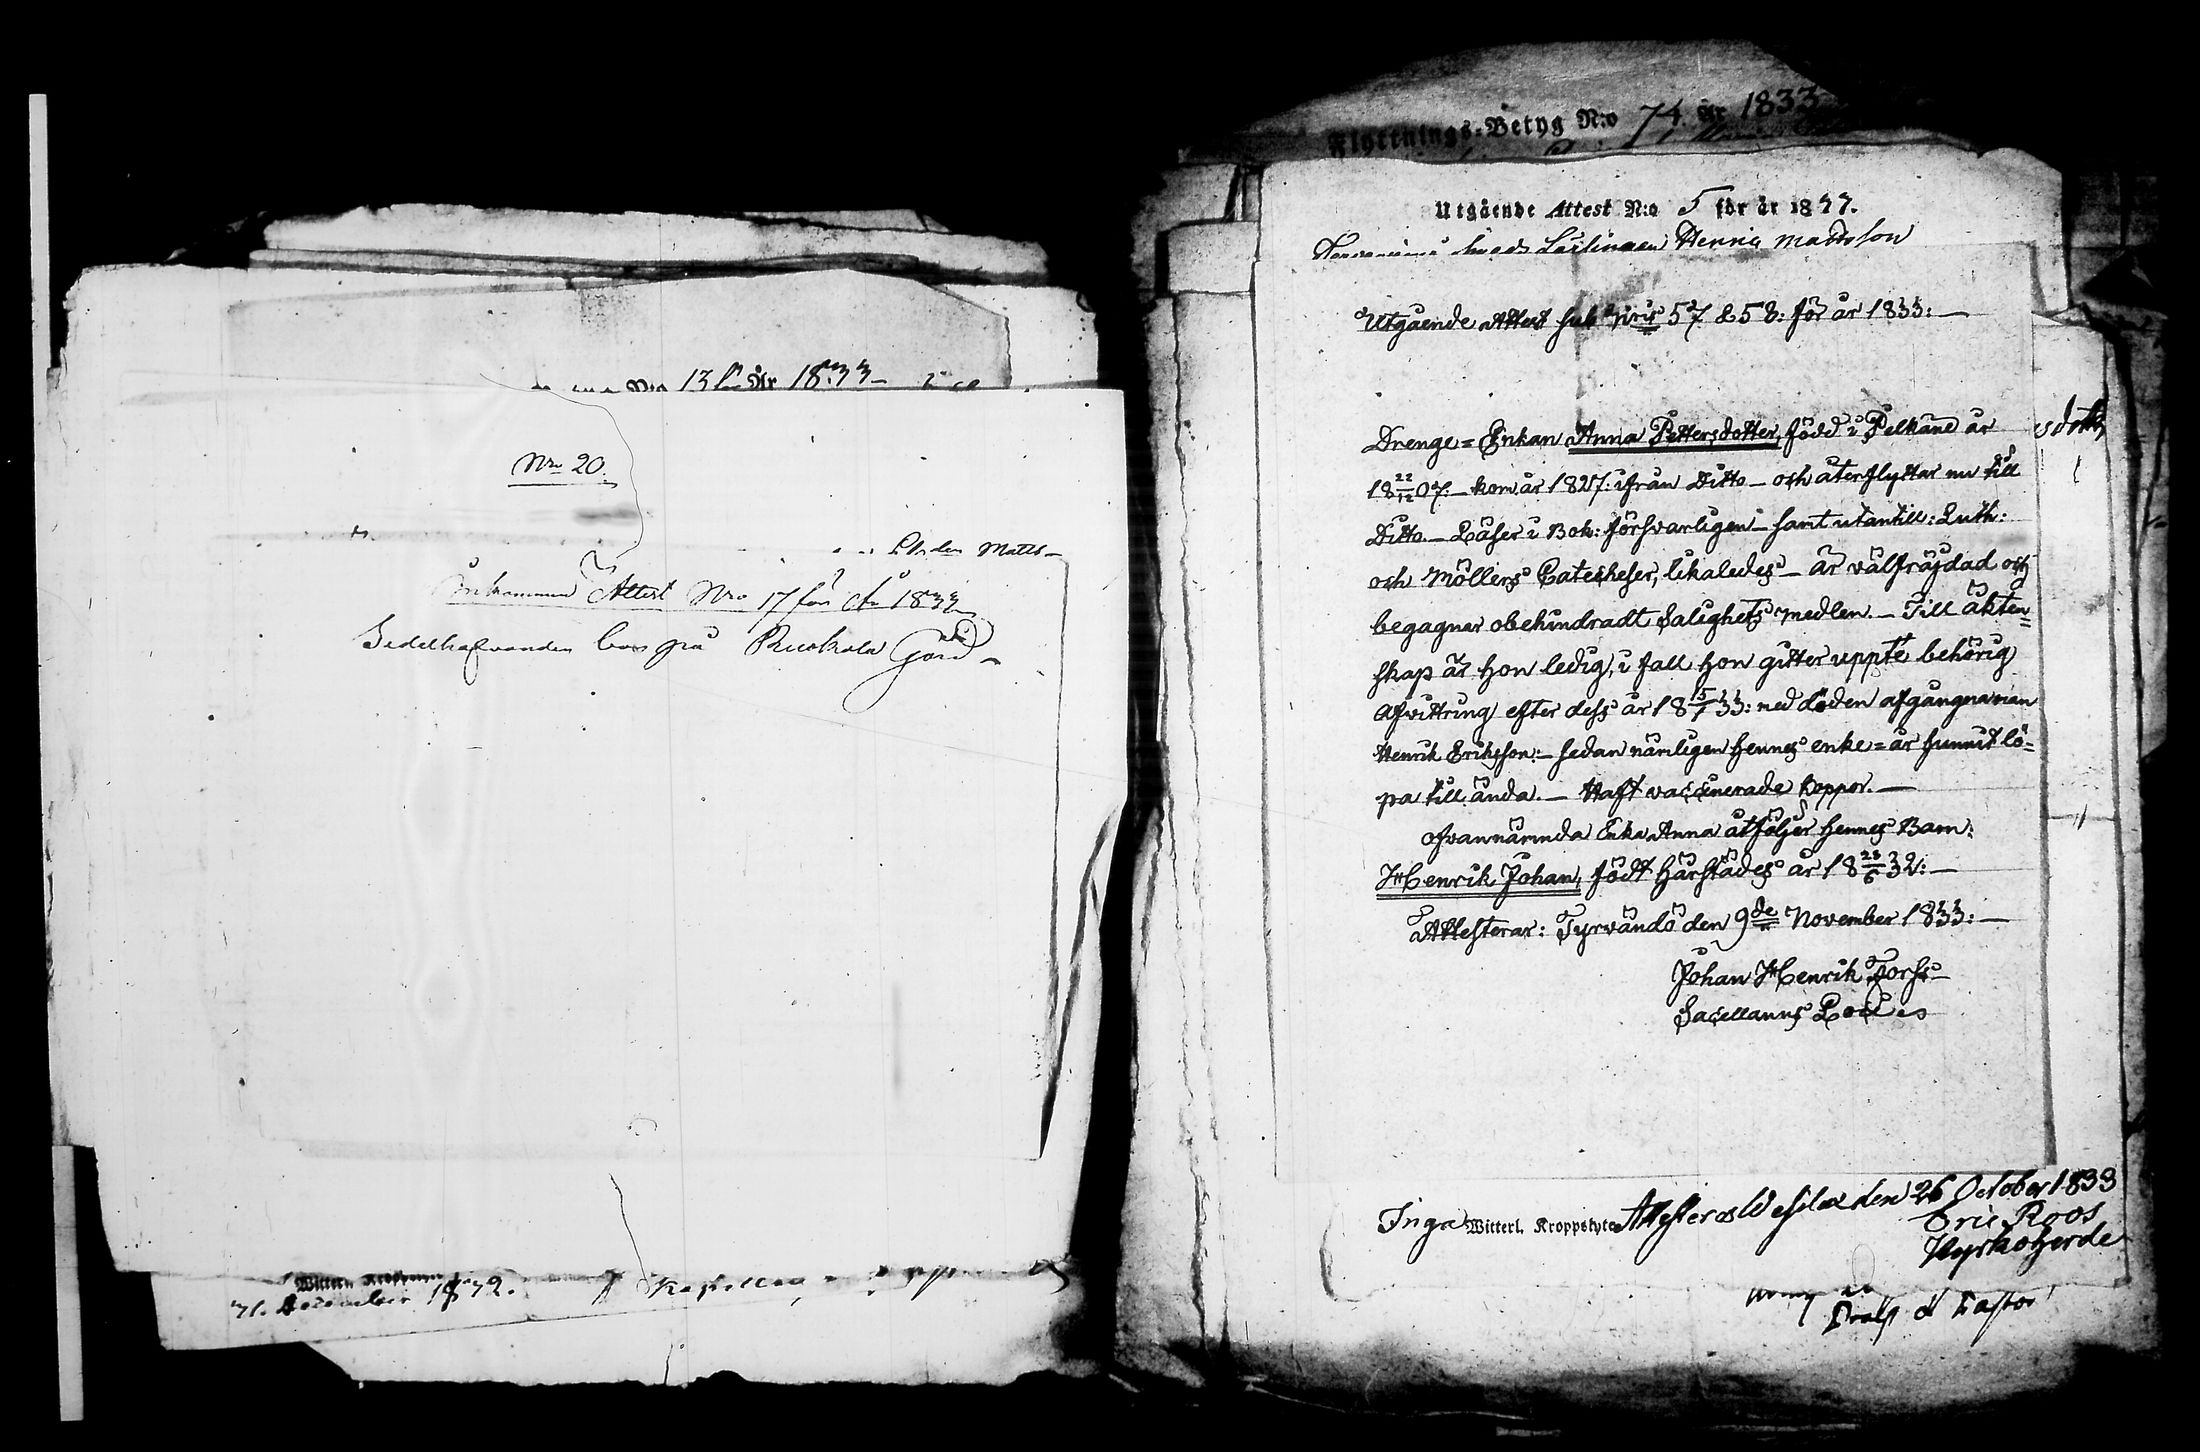 13 för År 1833
Nro 20.
Matts-
Inkommen Attest Nro 17 för År 1833
Sedelhafvanden bor på Ruokola Gård
31. December 1832.
Flyttnings-Betyg N:o 74. År 1833
Utgående Attest N:o 5 för år 1833.
Henric Mattsson
Utgående Attest sub N:ris 57 & 58: för år 1833:—
Drenge=Enkan Anna Pettersdotter, född i Pelkäne år
18 22/12 07:— kom år 1827: ifrån Ditto — och återflyttar nu till
Ditto.— Läser i Bok: försvarligen — samt utantill: Luth:
och Möllers Catecheser, likaledes — är välfräjdad och
begagnar obehindradt Salighets medlen.— Till äkten=
skap är hon ledig, i fall hon gitter uppte behörig
Afvittring efter dess år 18 15/7 33: med döden afgångna man
Henrik Eriksson:— sedan nämligen hennes enke=år hunnit lö=
pa till ända.— Haft vaccinerade koppor.—
Ofvannämnda Enka Anna åtföljer hennes Barn:
Henrik Johan, födt härstädes år 18 28/6 32:—
Attesterar: Tyrvändö den 9de November 1833:—
Johan Henrik Forss—
Sacellanus Loci
Inga Witterl. Kroppslyte Attesterar Wesilax den 26 October 1833
Eric Roos
Kyrkoherde